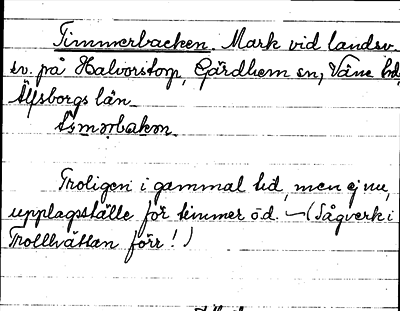 Timmerbacken. Mark vid landsv.
sv. på Halvorstorp, Gärdhem sn, Väne hd,
Älfsborgs län

Troligen i gammal tid, men ej nu,
upplagsställe för timmer o.d. – (Sågverk i
Trollhättan förr!)